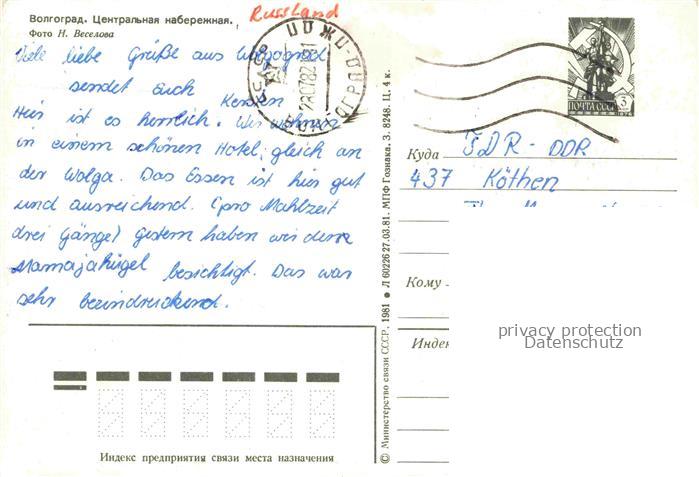 Волгоград. Центральная набережная.
Фото Н. Веселова
Russland
Viele liebe Grüße aus Wolgograd
sendet Euch
Hier ist es herrlich. Wir wohnen
in einem schönen Hotel, gleich an
der Wolga. Das Essen ist hier gut
und ausreichend. (pro Mahlzeit
drei Gänge) gestern haben wir den
Mamajahügel besichtigt. Das war
sehr beeindruckend.
Индекс предприятия связи места назначения
© Министерство связи СССР, 1981 ● Л 60226 27.03.81. МПФ Гознака. З. 8248. Ц. 4 к.
ПОЧТА СССР 3
Куда DDR
437 Köthen
Кому
Индек
privacy protection
Datenschutz